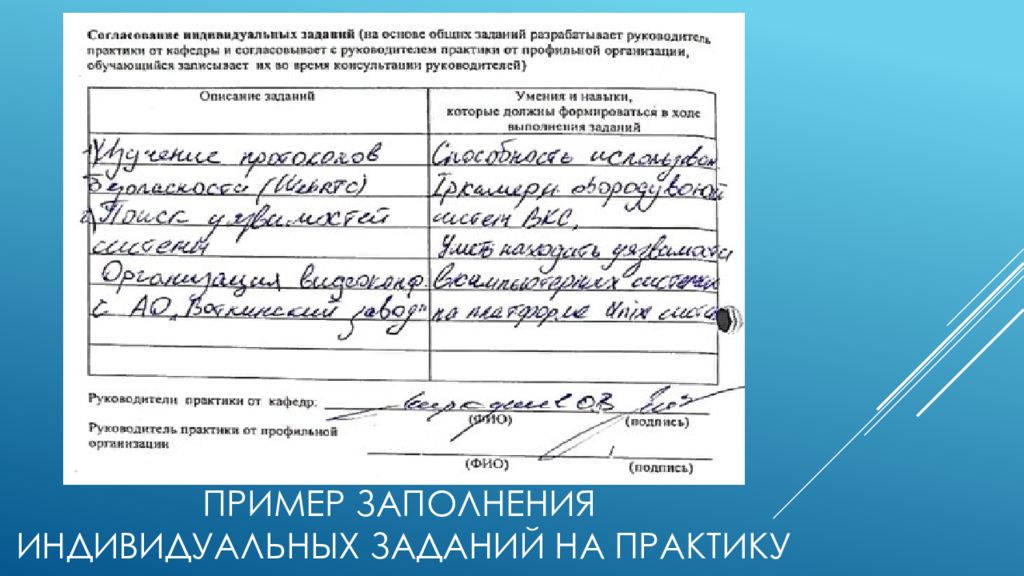 Согласование индивидуальных заданий (на основе общих заданий разрабатывает руководитель
практики от кафедры и согласовывает с руководителем практики от профильной организации,
обучающийся записывает их во время консультации руководителей)
Описание заданий
Умения и навыки,
которые должны формироваться в ходе
выполнения заданий
1) Изучение протоколов
безопасности (WebRTC)
2) Поиск уязвимостей
системы
Организация видеоконф.
с АО „Воткинский завод"
Способность использов.
систем ВКС,
Уметь находить уязвимости
в компьютерных системах
на платформе Unix систем
Руководители практики от кафедр:
ОВ
(ФИО)
(подпись)
Руководитель практики от профильной
организации
(ФИО)
(подпись)
ПРИМЕР ЗАПОЛНЕНИЯ
ИНДИВИДУАЛЬНЫХ ЗАДАНИЙ НА ПРАКТИКУ